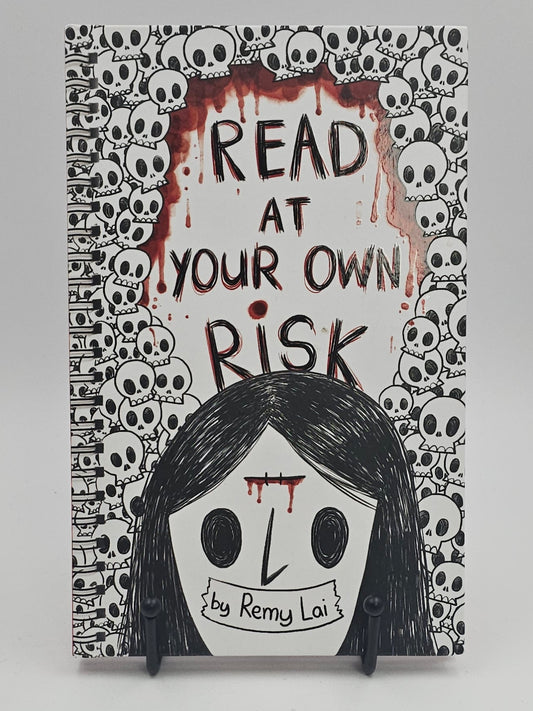 READ
AT
YOUR OWN
RISK
by Remy Lai